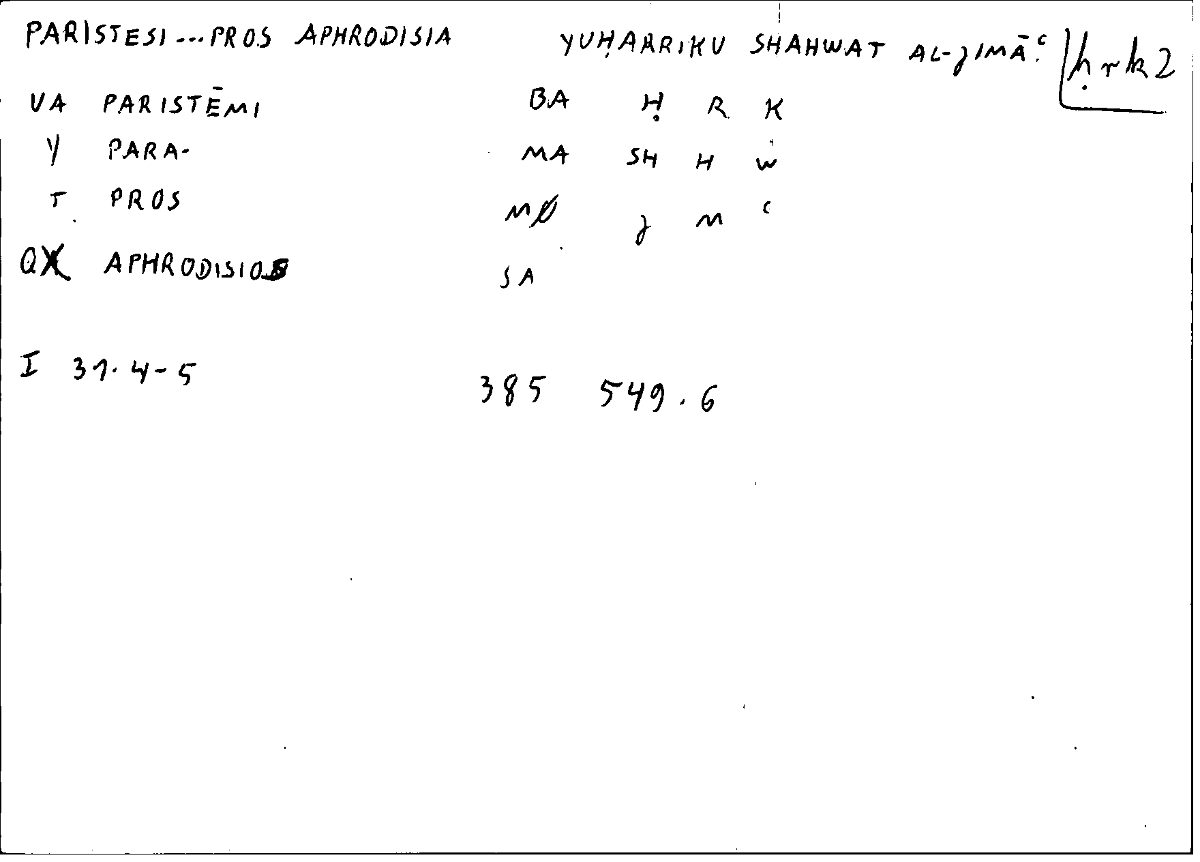 PARISTESI...PROS APHRODISIA YUḤARRIKU SHAHWAT AL-JIMĀʿ. ḥrk2
VA PARISTĒMI BA Ḥ R K
Y PARA- MA SH H W
T PROS MØ J M ʿ
QX APHRODISIOS SA
I 31.4-5 385 549.6